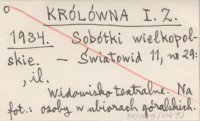 KRÓLÓWNA I. Z.
1934. Sobótki wielkopol-
skie. – Światowid 11, nr 29:
, il.
Widowisko teatralne. Na
fot.: osoby w ubiorach góralskich.